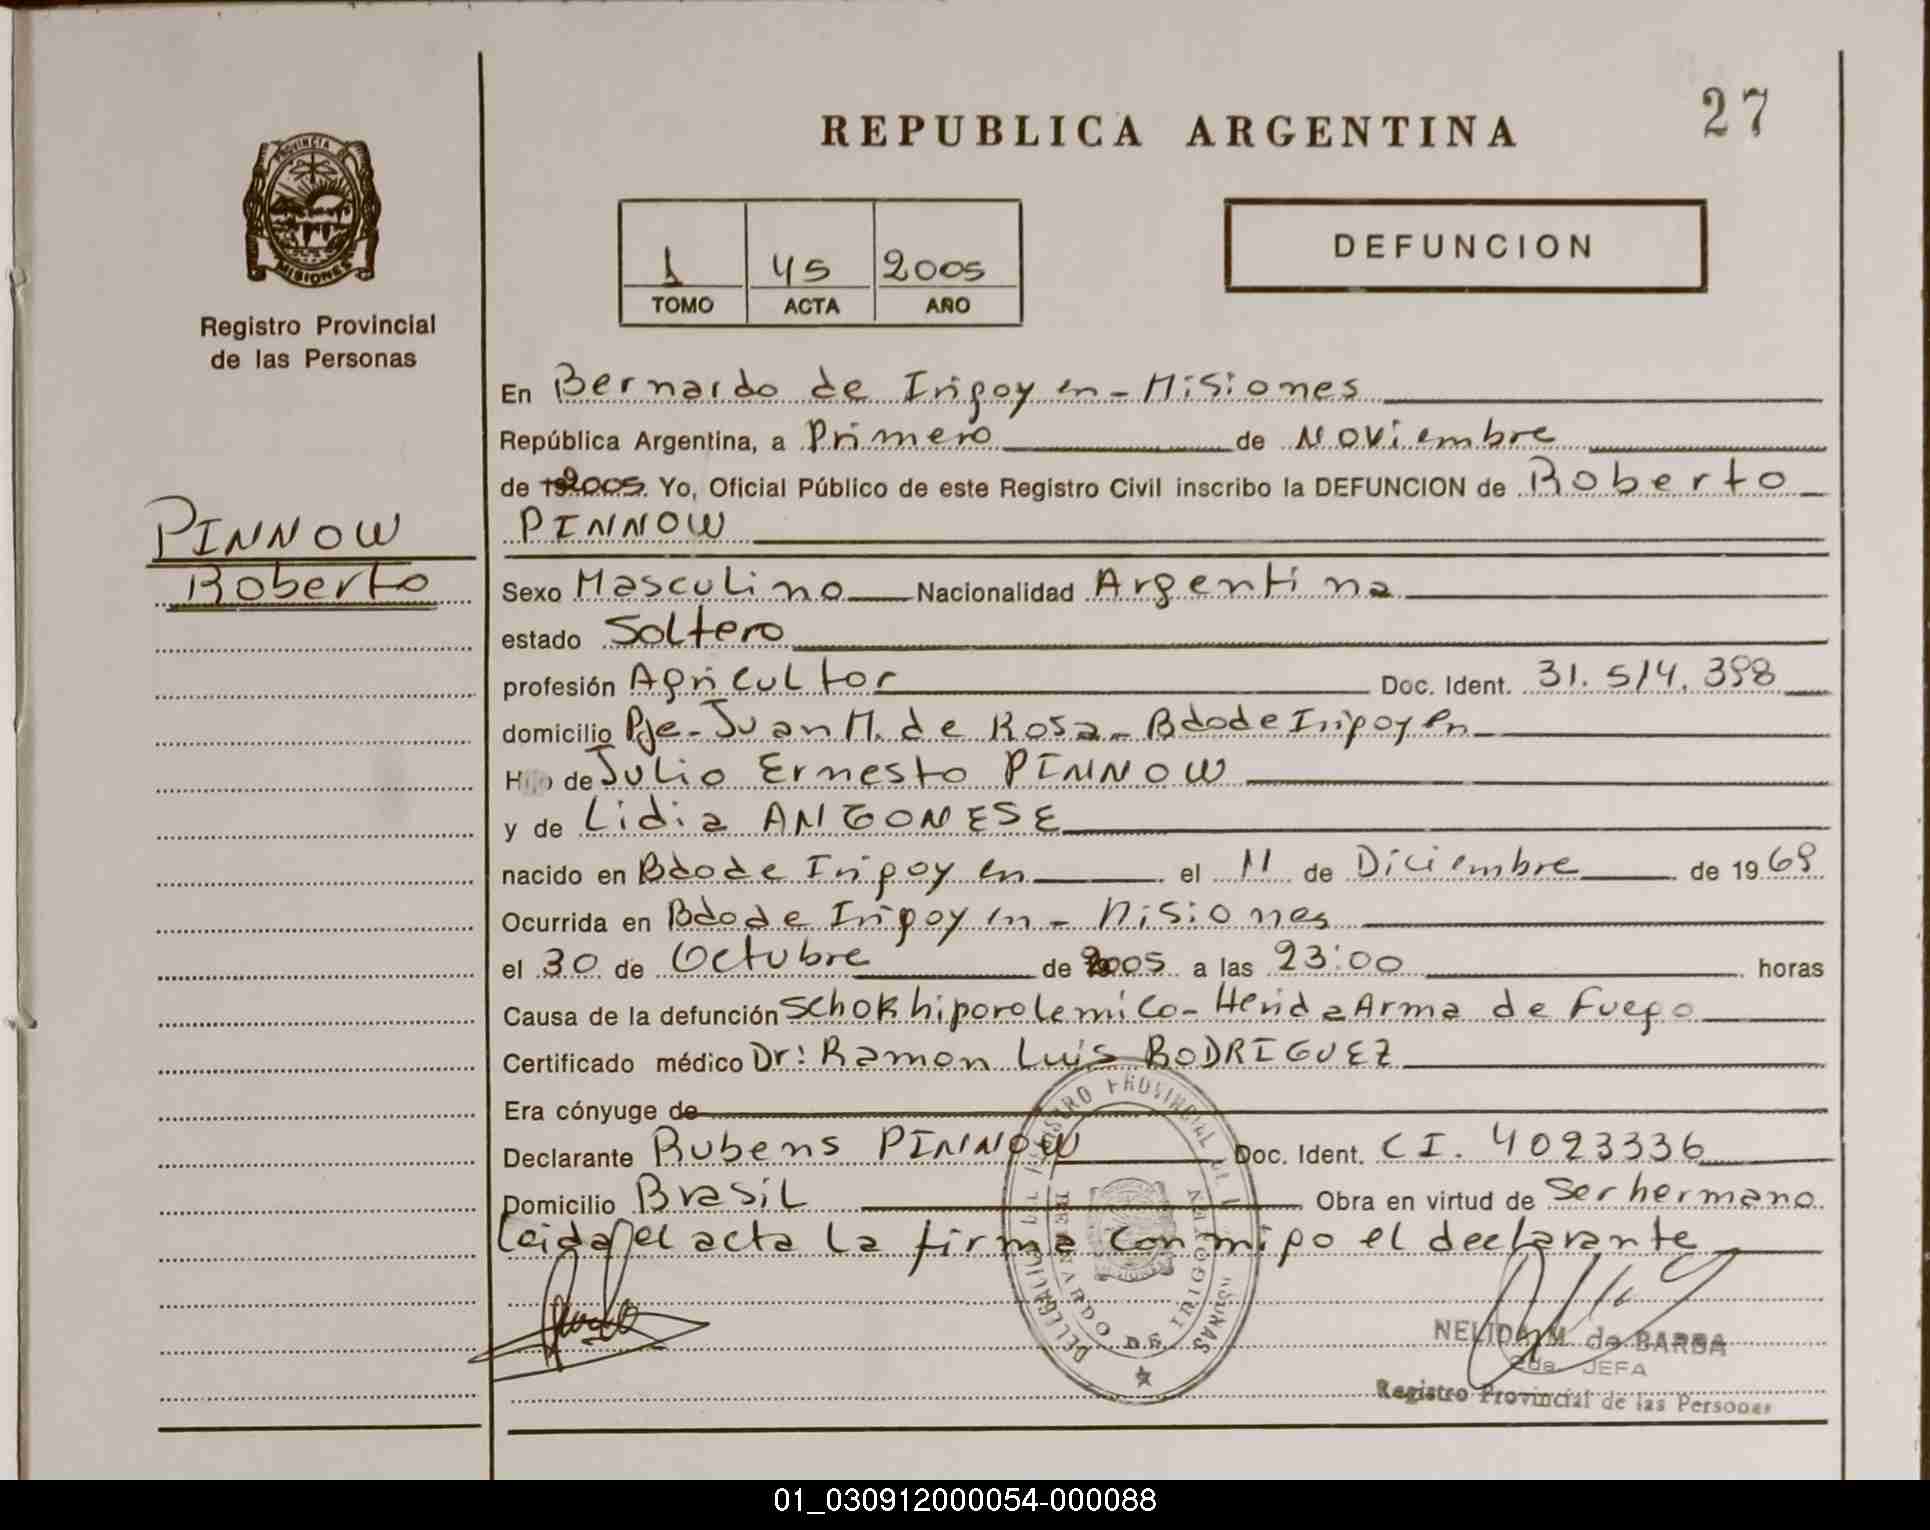 27
REPUBLICA ARGENTINA
PROVINCIA DE
MISIONES
Registro Provincial
de las Personas
1 45 2005
TOMO ACTA AÑO
DEFUNCION
En Bernardo de Irigoyen - Misiones
República Argentina, a Primero de Noviembre
de 2005. Yo, Oficial Público de este Registro Civil inscribo la DEFUNCION de Roberto
PINNOW
PINNOW
Roberto
Sexo Masculino Nacionalidad Argentina
estado Soltero
profesión Agricultor Doc. Ident. 31.514.398
domicilio Pje- Juan M. de Rosa - Bdo de Irigoyen
Hijo de Julio Ernesto PINNOW
y de Lidia ANGONESE
nacido en Bdo de Irigoyen el 11 de Diciembre de 1969
Ocurrida en Bdo de Irigoyen - Misiones
el 30 de Octubre de 2005 a las 23:00 horas
Causa de la defunción Schok hiporolemico - Herida Arma de Fuego
Certificado médico Dr: Ramon Luis RODRIGUEZ
Era cónyuge de
Declarante Rubens PINNOW Doc. Ident. CI. 4023336
Domicilio Brasil Obra en virtud de Ser hermano
Leida el acta la firma conmigo el declarante
REGISTRO PROVINCIAL DE LAS PERSONAS
DELEGACION
BERNARDO DE IRIGOYEN
NELIDA M. de BARBA
2da. JEFA
Registro Provincial de las Personas
01_030912000054-000088